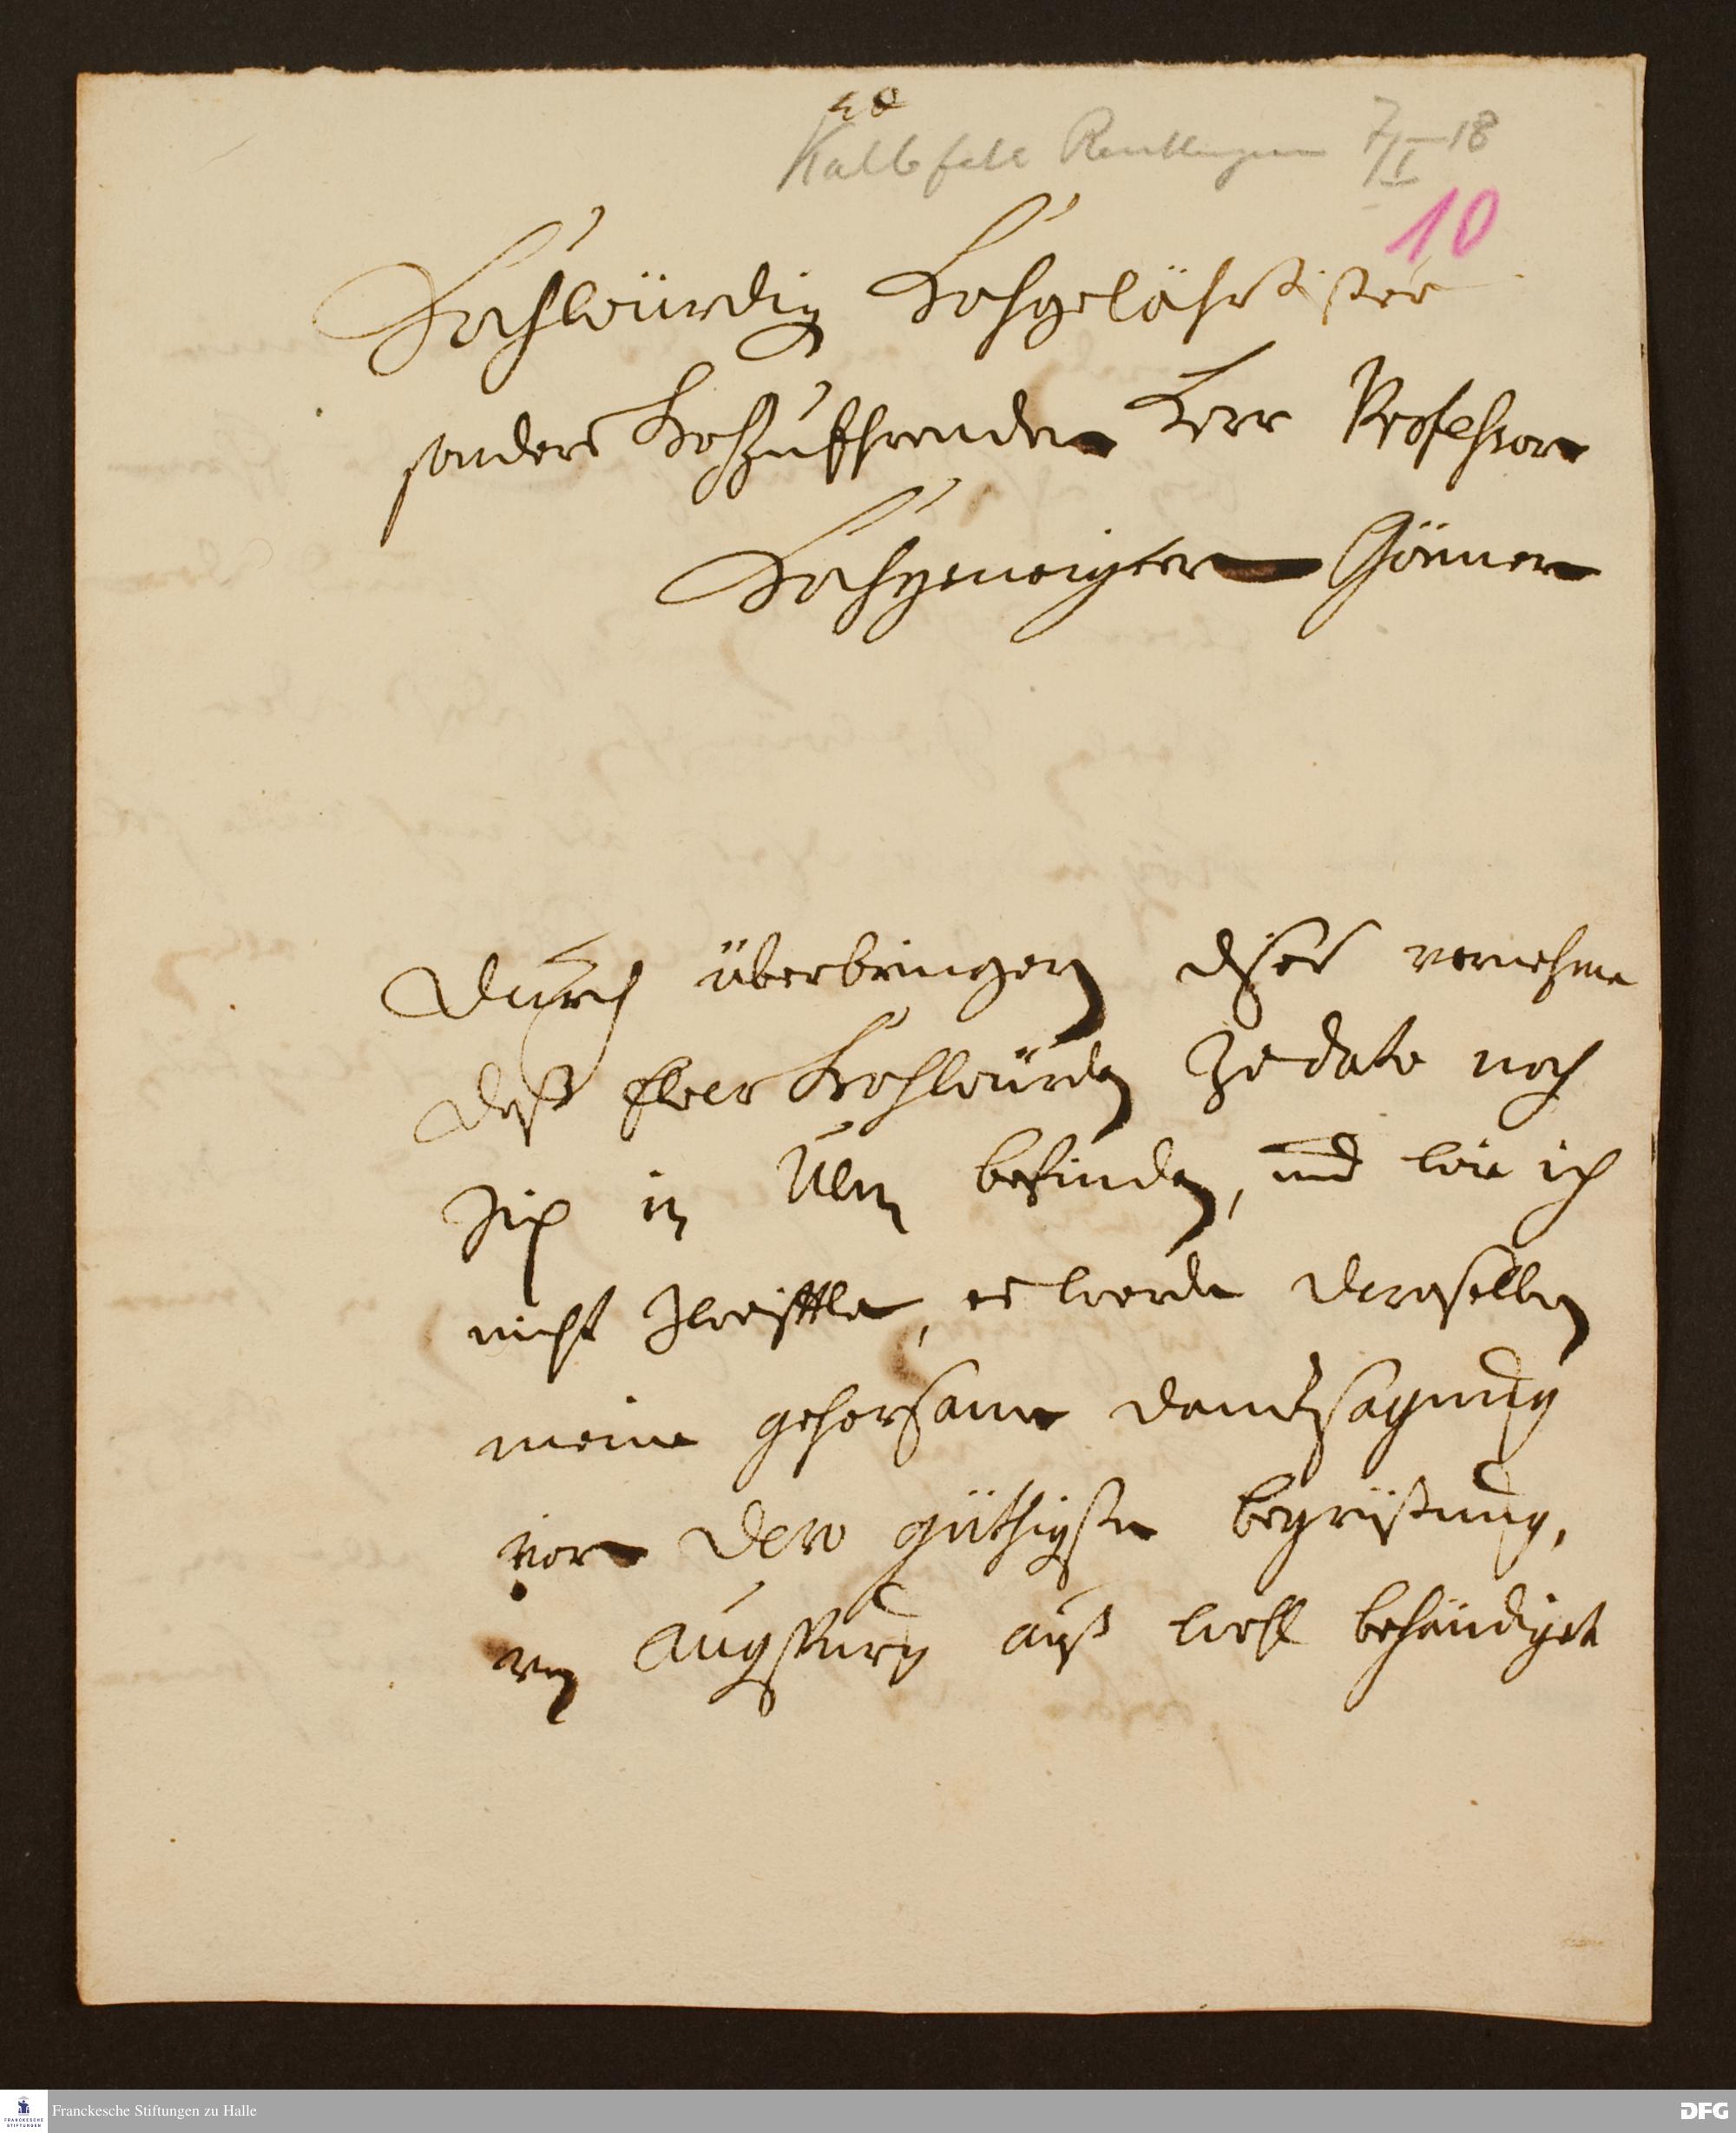 Kalbfell Reutlingen 7/I 18
10
Hochwürdig Hochgelährtister
sonders HochzuEhrender Herr Professor
Hochgeneigter Gönner
Durch überbringern dises vernehme
daß Ewer Hochwürden zu dato noch
sich in Ulm befinden, und wie ich
nicht zweiffle, es werde deroselben
meine gehorsame dancksagung
vor dero güthigste begrüßung,
von Augspurg auß wohl behändiget
Franckesche Stiftungen zu Halle
FRANCKESCHE STIFTUNGEN
DFG